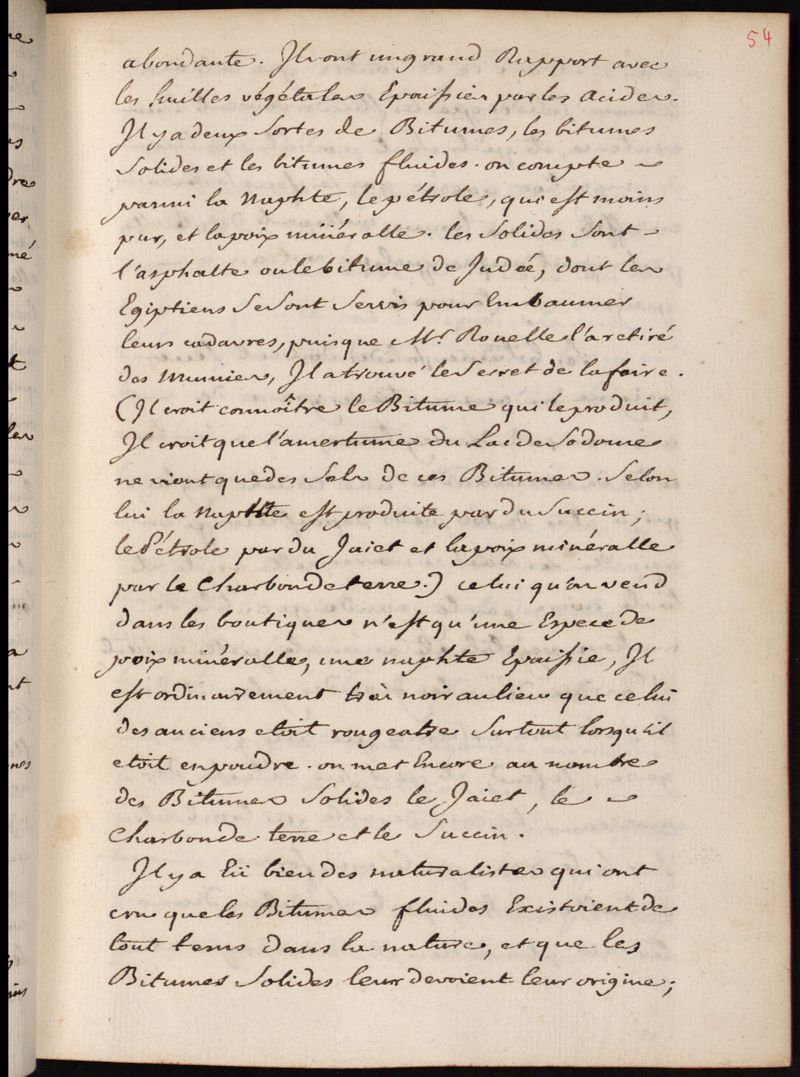 54
abondante. Il ont un grand Rapport avec
les huilles végétales Epaissies par les acides.
Il y a deux Sortes de Bitumes, les bitumes
Solides et les bitumes fluides. on compte ~
parmi la Naphte, le pétrole, qui est moins
pur, et la poix minéralle. les Solides Sont ~
l'asphalte ou le bitume de Judée, dont les
Egiptiens Se Sont Servis pour Embaumer
leurs cadavres, puisque Mr. Rouelle l'a retiré
des Mumies, Il a trouvé le Secret de la faire.
(Il croit connoître le Bitume qui le produit,
Il croit que l'amertume du Lac de Sodome
ne vient que des Sels de ces Bitumes. Selon
lui la Naphte est produite par du Succin;
le Pétrole par du Jaiet et la poix minéralle
par le Charbon de terre.) celui qu'on vend
dans les boutiques n'est qu'une Espece de
poix minéralle, une naphte Epaissie, Il
est ordinairement très noir au lieu que celui
des anciens etoit rougeatre Surtout lorsqu'il
etoit en poudre. on met Encore au nombre
des Bitumes Solides le Jaiet, le ~
Charbon de terre et le Succin.
Il y a Eü bien des naturalistes qui ont
cru que les Bitumes fluides Existoient de
tout tems dans la nature, et que les
Bitumes Solides leur devoient leur origine;